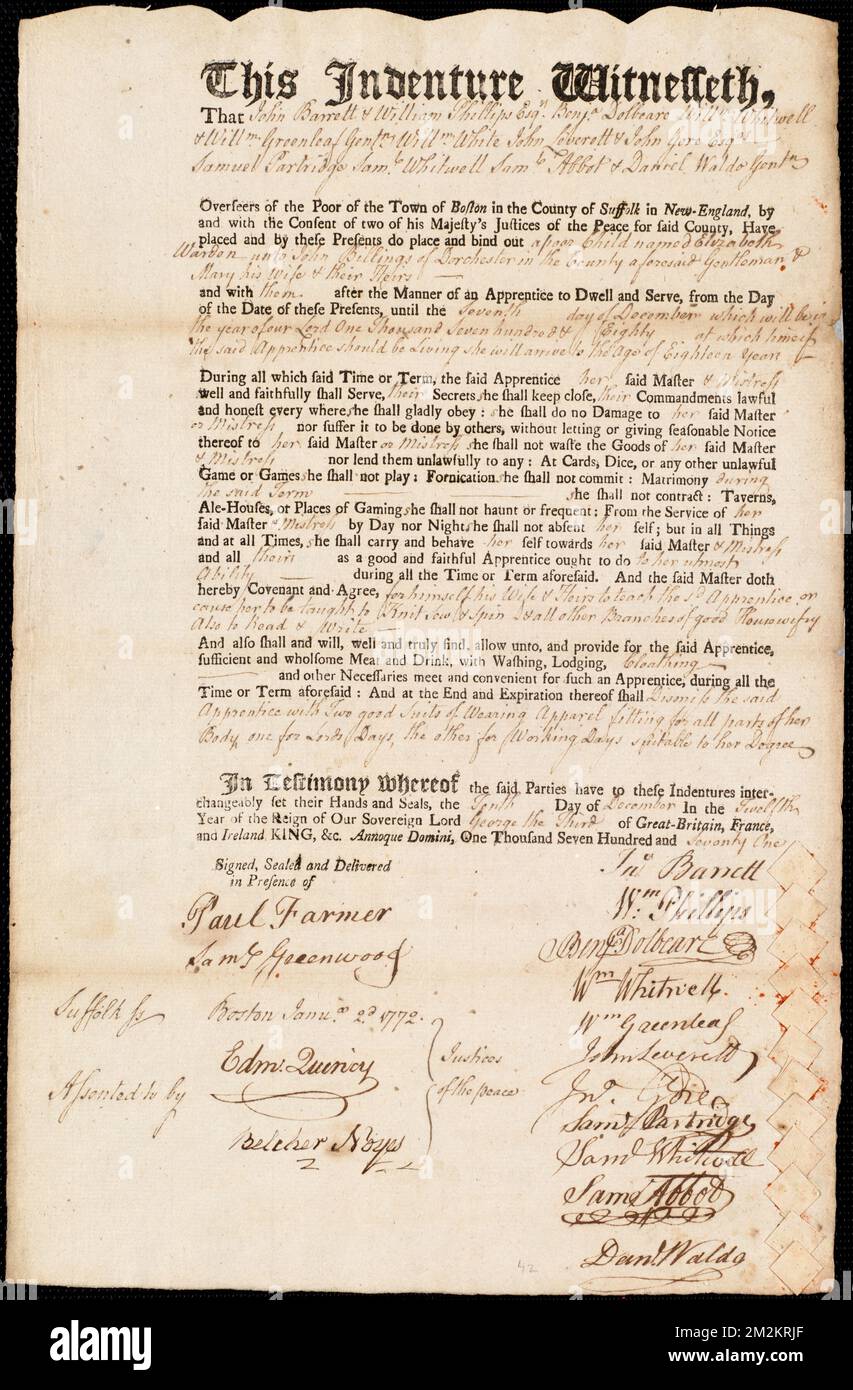 This Indenture Witnesseth,
That John Barrett & William Phillips Esqrs. Benja. Dolbeare Willm. Whitwell
& Willm. Greenleaf Gentn. Willm. White John Leverett & John Gore Esqrs
Samuel Partridge Saml. Whitwell Saml. Abbot & Daniel Waldo Gentn
Overseers of the Poor of the Town of Boston in the County of Suffolk in New-England, by
and with the Consent of two of his Majesty's Justices of the Peace for said County, Have
placed and by these Presents do place and bind out a poor Child named Elizabeth
Warden unto John Billings of Dorchester in the County aforesaid Gentleman &
Mary his Wife & their Heirs
and with them after the Manner of an Apprentice to Dwell and Serve, from the Day
of the Date of these Presents, until the Seventh day of December which will be in
the year of our Lord One Thousand Seven hundred & Eighty at which time if
the said Apprentice should be Living she will arrive to the Age of Eighteen Years
During all which said Time or Term, the said Apprentice her said Master & Mistress
well and faithfully shall Serve, their Secrets she shall keep close, their Commandments lawful
and honest every where she shall gladly obey : she shall do no Damage to her said Master
or Mistress nor suffer it to be done by others, without letting or giving seasonable Notice
thereof to her said Master or Mistress she shall not waste the Goods of her said Master
& Mistress nor lend them unlawfully to any : At Cards, Dice, or any other unlawful
Game or Games she shall not play : Fornication she shall not commit : Matrimony during
the said Term she shall not contract : Taverns,
Ale-Houses, or Places of Gaming she shall not haunt or frequent : From the Service of her
said Master & Mistress by Day nor Night she shall not absent her self; but in all Things
and at all Times, she shall carry and behave her self towards her said Master & Mistress
and all theirs as a good and faithful Apprentice ought to do to her utmost
Ability during all the Time or Term aforesaid. And the said Master doth
hereby Covenant and Agree, for himself his Wife & Heirs to teach the sd. Apprentice or
cause her to be taught to Knit Sew & Spin & all other Branches of good Housewifry
Also to Read & Write
And also shall and will, well and truly find, allow unto, and provide for the said Apprentice,
sufficient and wholsome Meat and Drink, with Washing, Lodging, Cloathing
and other Necessaries meet and convenient for such an Apprentice, during all the
Time or Term aforesaid : And at the End and Expiration thereof shall Dismiss the said
Apprentice with Two good Suits of Wearing Apparel fitting for all parts of her
Body, one for Lords Days, the other for Working Days suitable to her Degree
In Testimony whereof the said Parties have to these Indentures inter-
changeably set their Hands and Seals, the Tenth Day of December In the Twelfth
Year of the Reign of Our Sovereign Lord George the Third of Great-Britain, France,
and Ireland KING, &c. Annoque Domini, One Thousand Seven Hundred and Seventy One
Signed, Sealed and Delivered
in Presence of
Paul Farmer
Saml Greenwood
Jno Barrett
Wm. Phillips
Benja Dolbeare
Wm Whitwell
Wm Greenleaf
John Leverett
Jno. Gore
Saml Partridge
Saml Whitwell
Saml Abbot
Danl Waldo
Suffolk ss Boston Janu. 2d. 1772.
Assented to by
Edm. Quincy
Belcher Noyes
Justices
of the peace
42
alamy
Image ID: 2M2KRJF
www.alamy.com